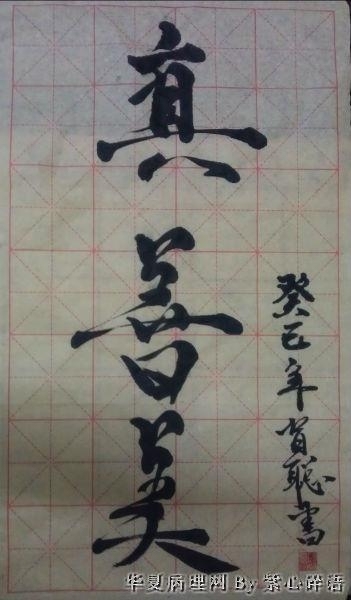 真善美
癸巳年肖聪書
华夏病理网 By 紫心碎语